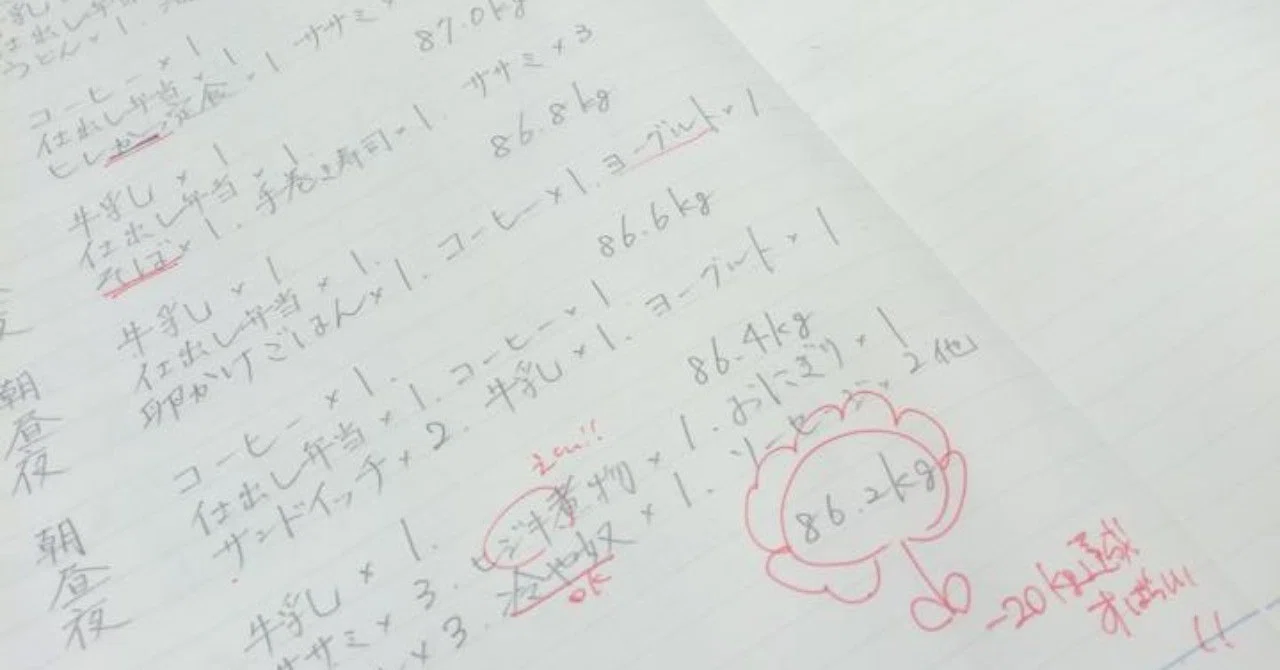 仕出し弁当
うどん×1.
87.0kg
コーヒー×1
仕出し弁当×1
ヒレかつ定食×1 ササミ×
ササミ×3
86.8kg
牛乳×1
仕出し弁当×1
そば×1. 手巻き寿司×1.
86.6kg
牛乳×1
仕出し弁当×1.
卵かけごはん×1. コーヒー×1. ヨーグルト×1
86.4kg
朝 コーヒー×1.
昼 仕出し弁当×1. コーヒー×1.
夜 サンドイッチ×2. 牛乳×1. ヨーグルト×1
86.2kg
朝 牛乳×1.
昼 ササミ×3. ヒジキ煮物×1. おにぎり×1
夜 ×3. 冷や奴×1. ソーセージ×2他
えらい!!
OK
-20kg達成!
すばらしい
!!